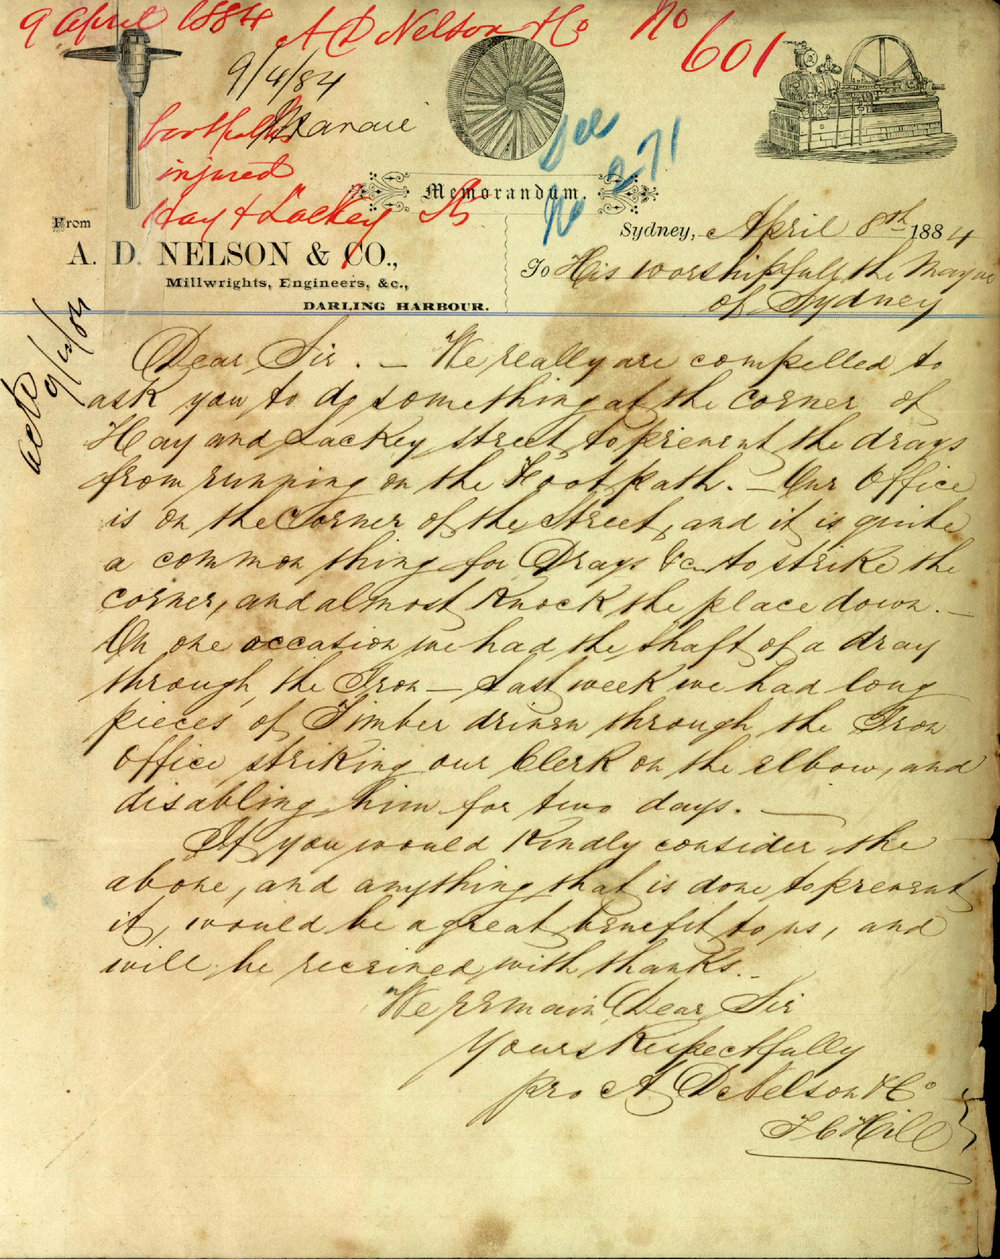 9 April 1884 A D Nelson & Co No 601
9/4/84
footpaths
injured
Hay & Lackey St
See
No 271
Memorandum.
From
A. D. NELSON & CO.,
Millwrights, Engineers, &c.,
DARLING HARBOUR.
Sydney, April 8th 1884
To His worshipfull the Mayor
of Sydney
9/4/84
Dear Sir. — We really are compelled to
ask you to do something at the corner of
Hay and Lackey street to prevent the drays
from running on the Footpath. — Our Office
is on the Corner of the Street, and it is quite
a common thing for Drays &c to strike the
corner, and almost Knock the place down. —
On one occasion we had the shaft of a dray
through the Iron — Last week we had long
pieces of Timber driven through the Iron
Office striking our Clerk on the elbow, and
disabling him for two days. —
If you would Kindly consider the
above, and anything that is done to prevent
it, would be a great benefit to us, and
will be received with thanks. —
We remain Dear Sir
Yours Respectfully
pro A D Nelson & Co
F C Hill